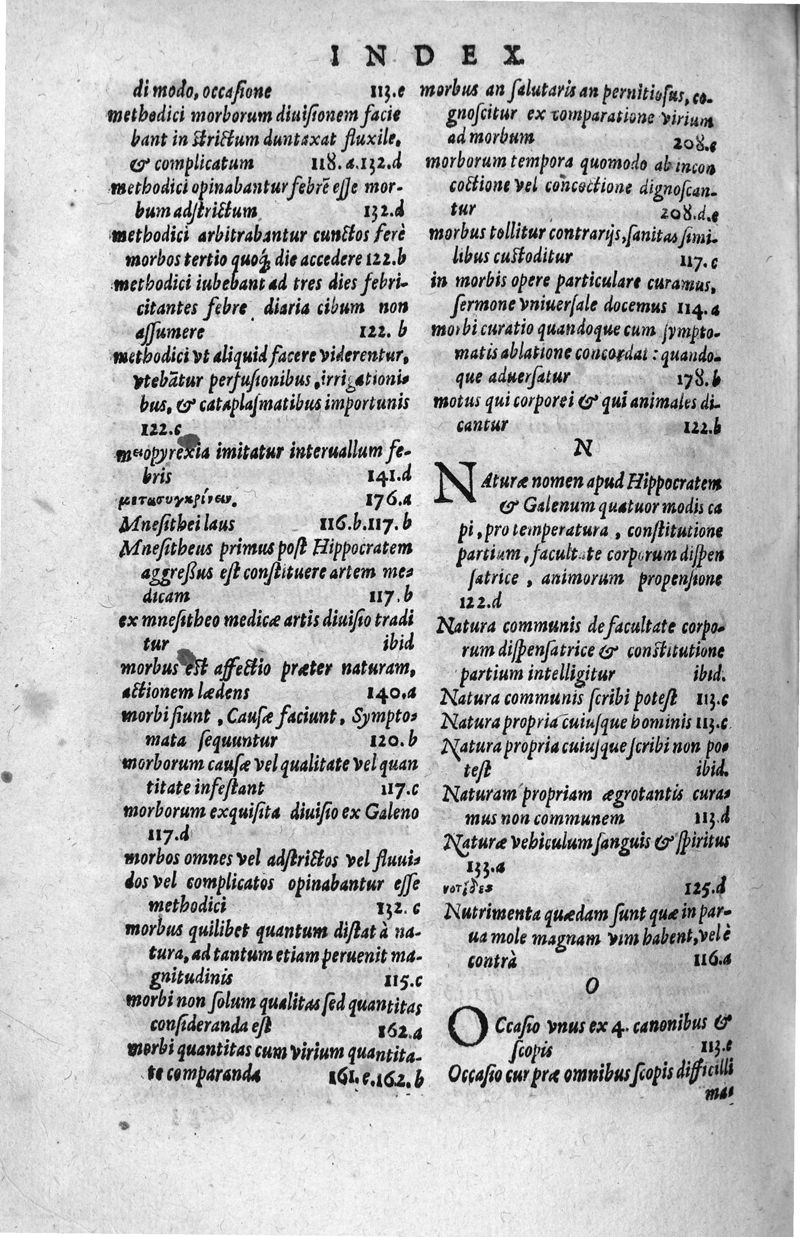 INDEX
di modo, occasione 113.e
methodici morborum diuisionem facie
bant in strictum duntaxat fluxile,
& complicatum 118.a.132.d
methodici opinabantur febrē esse mor-
bum adstrictum 132.d
methodici arbitrabantur cunctos ferè
morbos tertio quoq; die accedere 122.b
methodici iubebant ad tres dies febri-
citantes febre diaria cibum non
assumere 122. b
methodici vt aliquid facere viderentur,
vtebātur perfusionibus, irrigationi
bus, & cataplasmatibus importunis
122.c
meopyrexia imitatur interuallum fe-
bris 141.d
μετασυγκρίνειν. 176.a
Mnesithei laus 116.b.117.b
Mnesitheus primus post Hippocratem
aggressus est constituere artem me-
dicam 117.b
ex mnesitheo medicæ artis diuisio tradi
tur ibid
morbus est affectio præter naturam,
actionem lædens 140.a
morbi fiunt, Causæ faciunt, Sympto-
mata sequuntur 120.b
morborum causæ vel qualitate vel quan
titate infestant 117.c
morborum exquisita diuisio ex Galeno
117.d
morbos omnes vel adstrictos vel fluui-
dos vel complicatos opinabantur esse
methodici 132. c
morbus quilibet quantum distat à na-
tura, ad tantum etiam peruenit ma-
gnitudinis 115.c
morbi non solum qualitas sed quantitas
consideranda est 162.a
morbi quantitas cum virium quantita-
te comparanda 161.e.162.b
morbus an salutaris an pernitiosus, co-
gnoscitur ex comparatione virium
ad morbum 208.e
morborum tempora quomodo ab incon
coctione vel concoctione dignoscan-
tur 208.d.e
morbus tollitur contrarijs, sanitas simi-
libus custoditur 117.c
in morbis opere particulare curamus,
sermone vniuersale docemus 114.a
morbi curatio quandoque cum sympto-
matis ablatione concordat: quando-
que aduersatur 178.b
motus qui corporei & qui animales di-
cantur 122.b
N
NAturæ nomen apud Hippocratem
& Galenum quatuor modis ca
pi, pro temperatura, constitutione
partium, facultate corporum dispen
satrice, animorum propensione
122.d
Natura communis de facultate corpo-
rum dispensatrice & constitutione
partium intelligitur ibid.
Natura communis scribi potest 113.c
Natura propria cuiusque hominis 113.c
Natura propria cuiusque scribi non po-
test ibid.
Naturam propriam ægrotantis cura-
mus non communem 113.d
Naturæ vehiculum sanguis & spiritus
133.a
νοτίδες 125.d
Nutrimenta quædam sunt quæ in par-
ua mole magnam vim habent, vel è
contrà 116.a
O
OCcasio vnus ex 4. canonibus &
scopis 113.e
Occasio cur præ omnibus scopis difficilli
ma-